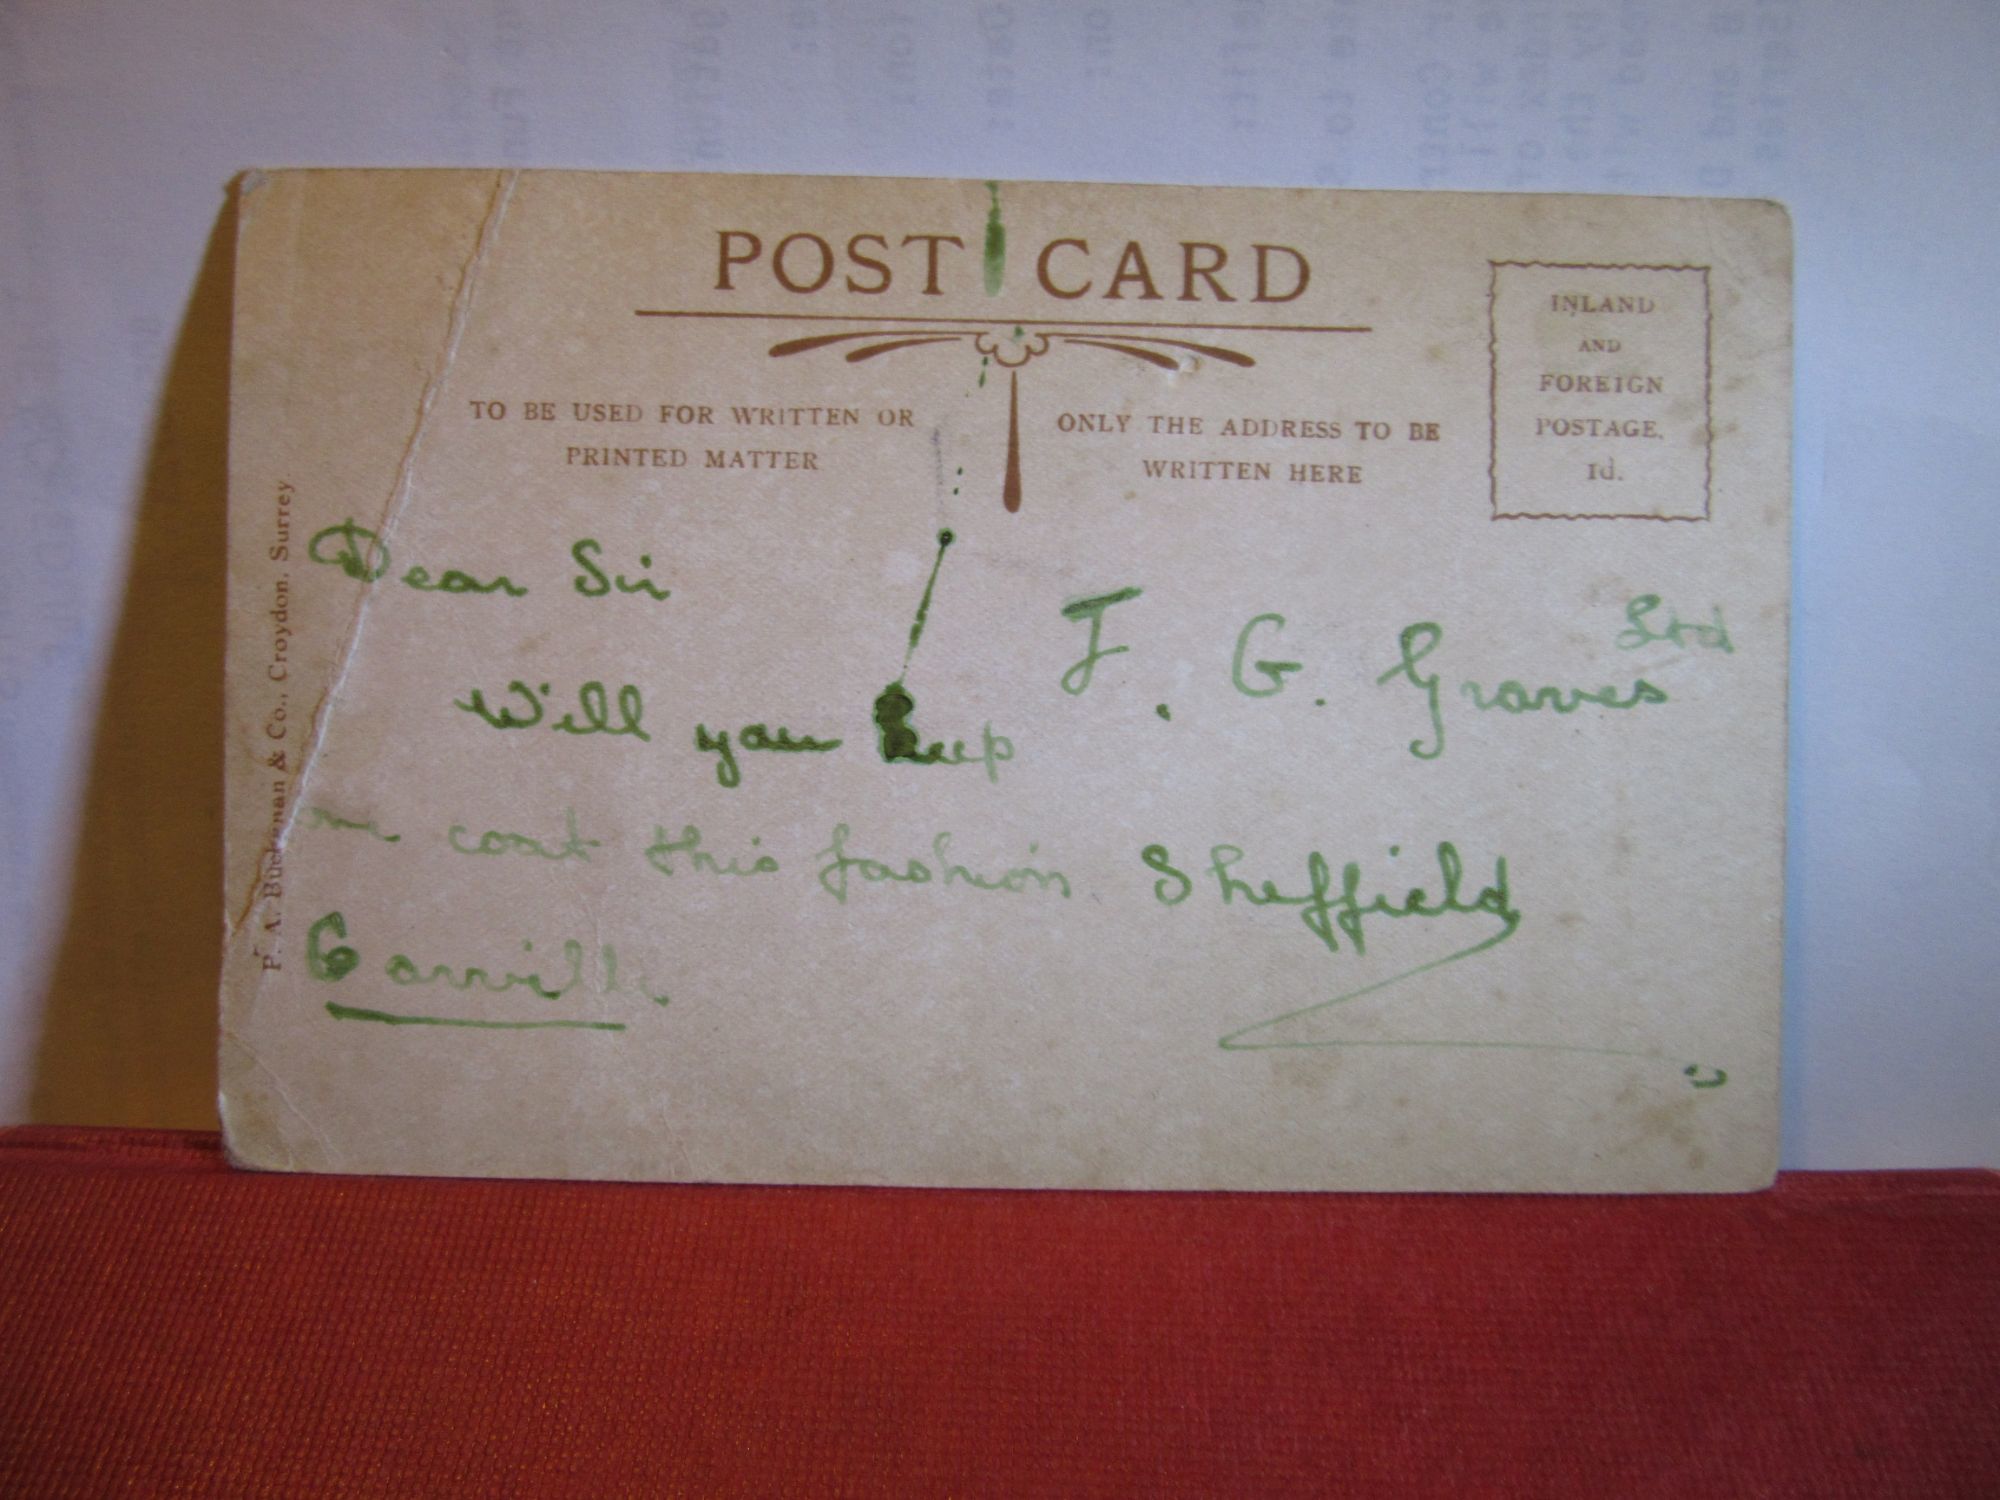 POST CARD
TO BE USED FOR WRITTEN OR
PRINTED MATTER
ONLY THE ADDRESS TO BE
WRITTEN HERE
INLAND
AND
FOREIGN
POSTAGE.
1d.
P. A. Buchanan & Co., Croydon, Surrey.
Dear Sir
Will you keep
me coat this fashion.
J. G. Graves Ltd
Sheffield